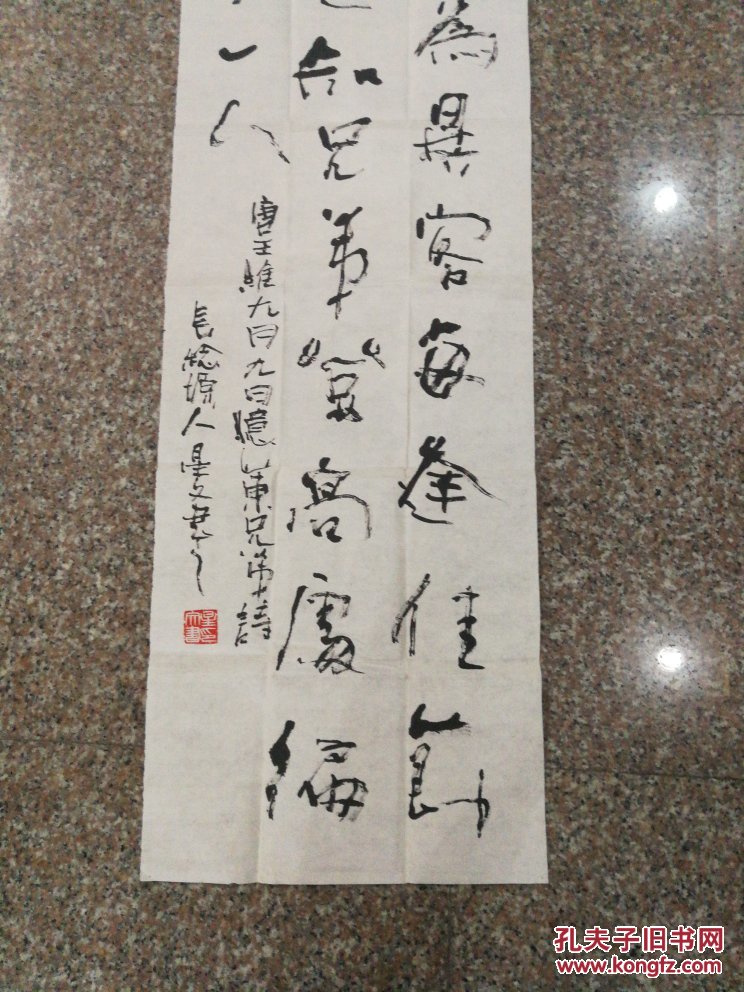 為異客每逢佳節
知兄弟登高處徧
一人
唐王維九月九日憶山東兄弟詩
長塬人星文書
孔夫子旧书网
www.kongfz.com